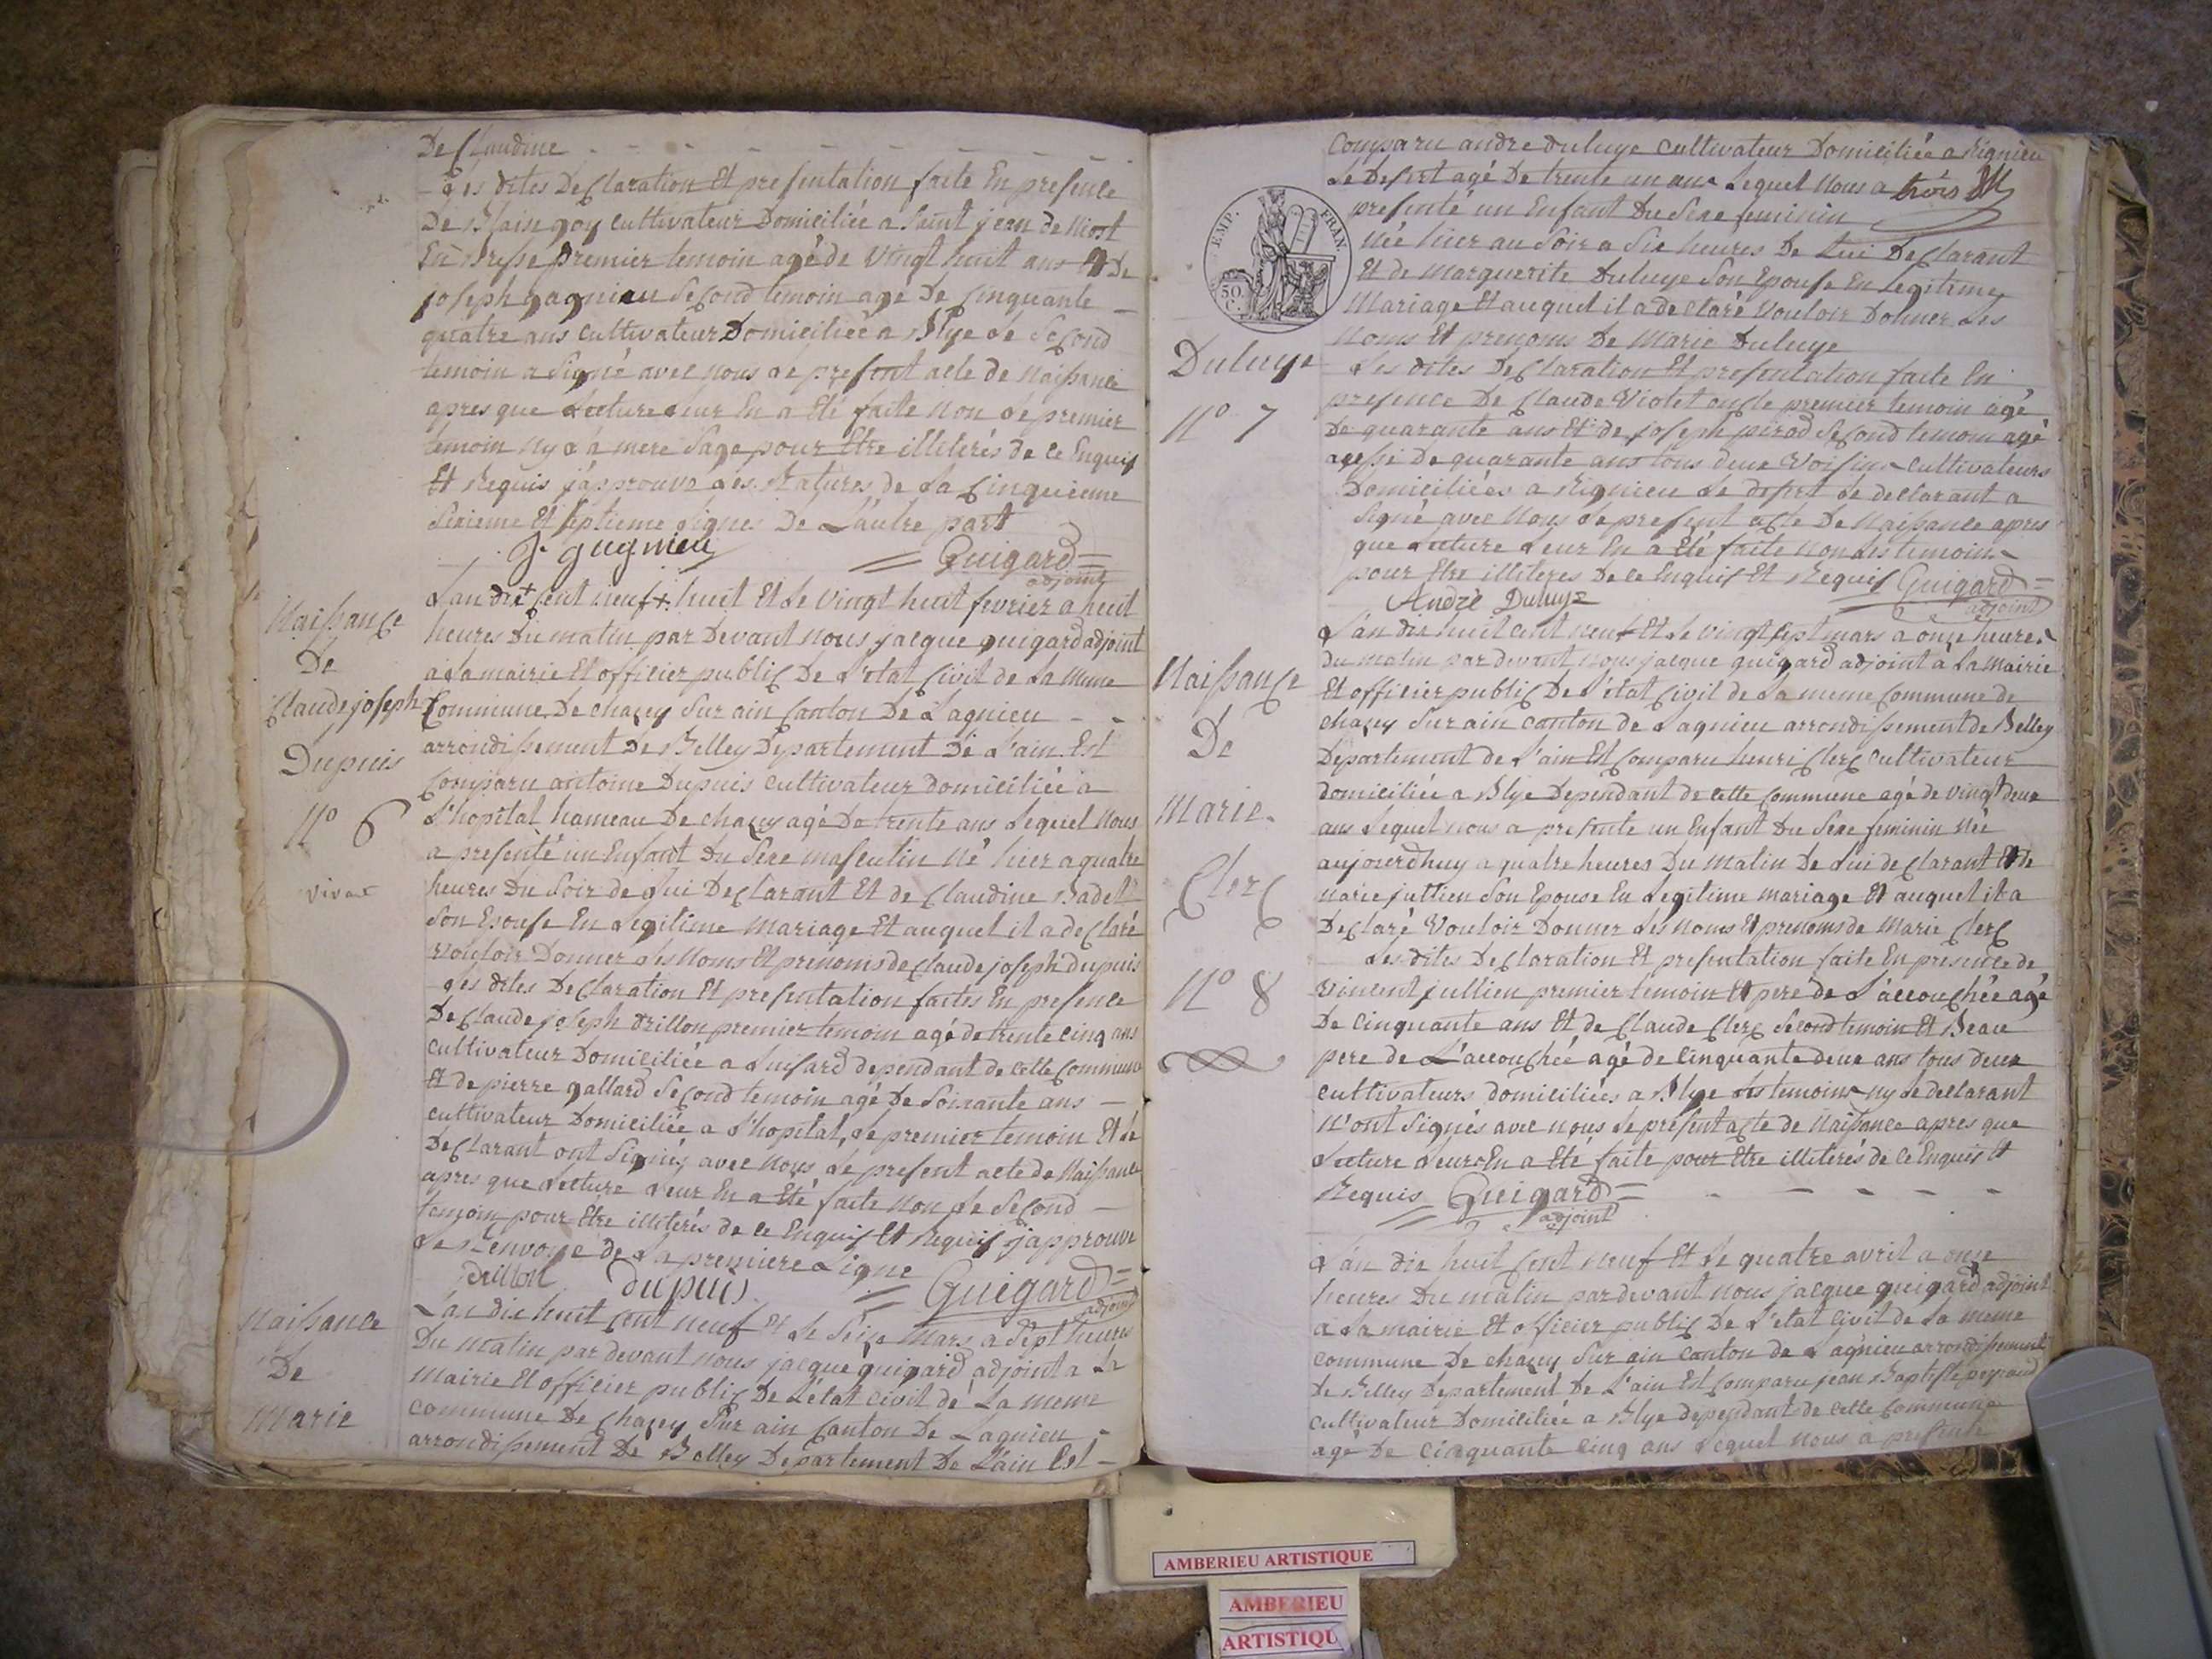 De Claudine
Les dites Declaration Et presentation faite En presence
De Blaise goy cultivateur Domiciliée a Saint jean de Niost
En Bresse premier temoin agé de Vingt huit ans Et De
joseph gagnieu Second temoin agé De Cinquante
quatre ans cultivateur Domiciliée a Blye Le Second
temoin a Signé avec nous Le present acte de Naissance
apres que Lecture Leur En a Eté faite Non Le premier
temoin Ny a mere Sage pour Etre illiterés de ce Enquis
Et Requis j'approuve Les Ratures de La Cinquieme
Sixieme Et Septieme Lignes De L'autre part
J. gugnieu
Guigard
adjoint
Naissance
De
Claude joseph
Dupuis
N° 6
vivat
L'an dix + Cent neuf +. huit Et Le vingt huit fevrier a huit
heures Du matin par Devant nous jacque guigard adjoint
a La mairie Et officier public De L'etat Civil de La meme
Commune De chazey Sur ain Canton De Lagnieu
arrondissement De Belley Departement De L'ain Est
Comparu antoine Dupuis cultivateur domiciliée a
L'hopital hameau De chazey agé De trente ans Lequel Nous
a presenté un Enfant Du Sexe masculin Né hier a quatre
heures Du Soir de Lui Declarant Et de Claudine Badet
Son Epouse En Legitime Mariage Et auquel il a declaré
Vouloir Donner Les Noms Et prenoms de Claude joseph Dupuis
Les dites Declaration Et presentation faites En presence
De Claude joseph Drillon premier temoin agé de trente cinq ans
cultivateur Domiciliée a Luisard dependant de cette Commune
Et de pierre gallard Second temoin agé De Soixante ans
cultivateur Domiciliée a L'hopital, Le premier temoin Et Le
Declarant ont Signés avec Nous Le present acte de Naissance
apres que Lecture Leur En a Eté faite Non Le Second
temoin pour Etre illiterés de ce Enquis Et Requis j'approuve
Le Renvoye de La premiere Ligne
drillon dupuis Guigard
adjoint
Naissance
De
Marie
L'an dix huit Cent neuf Et Le Seize Mars a Sept heures
Du matin par devant nous jacque guigard adjoint a La
Mairie Et officier public De L'etat Civil de La meme
Commune De Chazey Sur ain Canton De Lagnieu
arrondissement De Belley Departement De L'ain Est
EMP. FRAN.
50
C.
Duluye
N° 7
Comparu andre duluye cultivateur Domiciliée a Rignieu
Le Desert agé De trente un ans Lequel Nous a trois
presenté un Enfant Du Sexe feminin
Née hier au Soir a Six heures De Lui Declarant
Et de Marguerite Duluye Son Epouse En Legitime
Mariage Et auquel il a declaré Vouloir Donner Les
Noms Et prenoms De Marie Duluye
Les dites Declaration Et presentation faite En
presence De Claude Violet oncle premier temoin agé
De quarante ans Et de joseph perod Second temoin agé
aussi De quarante ans tous deux Voisins cultivateurs
Domiciliées a Rignieu Le desert Le declarant a
Signé avec Nous Le present acte De Naissance apres
que Lecture Leur En a Eté faite Non Les temoins
pour Etre illiteres De ce Enquis Et Requis Guigard
adjoint
André Duluye
Naissance
De
Marie
Clerc
N° 8
L'an dix huit cent neuf Et Le vingt Sept mars a onze heures
du matin par devant nous jacque guigard adjoint à La Mairie
Et officier public De L'etat Civil de La meme Commune de
chazey Sur ain canton de Lagnieu arrondissement de Belley
Departement de L'ain Est Comparu henri Clerc cultivateur
domiciliée a Blye Dependant de cette Commune agé de vingt deux
ans Lequel nous a presenté un Enfant Du Sexe feminin Née
aujourdhuy a quatre heures Du Matin De Lui declarant Et de
Marie jullien Son Epouse En Legitime mariage Et auquel il a
Declaré Vouloir Donner Les Noms Et prenoms de Marie Clerc
Les dites Declaration Et presentation faite En presence de
Vincent jullien premier temoin Et pere de L'accouchée agé
De cinquante ans Et de Claude Clerc Second temoin Et Beau
pere de L'accouchée agé de Cinquante deux ans tous deux
cultivateurs domiciliées a Blye Les temoins ny Le declarant
N'ont Signés avec nous Le present acte de Naissance apres que
Lecture Leur En a Eté faite pour Etre illiterés de ce Enquis Et
Requis Guigard
adjoint
L'an dix huit Cent neuf Et Le quatre avril a onze
heures Du matin par devant nous jacque guigard adjoint
a La mairie Et officier public De L'etat Civil de La meme
commune De chazey Sur ain canton de Lagnieu arrondissement
de Belley Departement De L'ain Est Comparu jean Baptiste peyraud
cultivateur Domiciliée a Blye dependant de cette Commune
agé De Cinquante Cinq ans Lequel nous a presenté
AMBERIEU ARTISTIQUE
AMBERIEU
ARTISTIQU